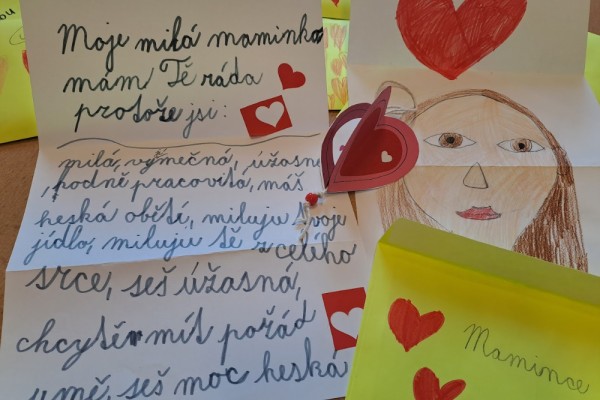 Moje milá maminko
mám Tě ráda
protože jsi:
milá, výmečná, úžasná
, hodně pracovitá, máš
heská obětí, miluju tvoje
jídlo, miluju tě z celého
srce, seš úžasná,
chcytěr mít pořád
u mě, seš moc heská
Mamince